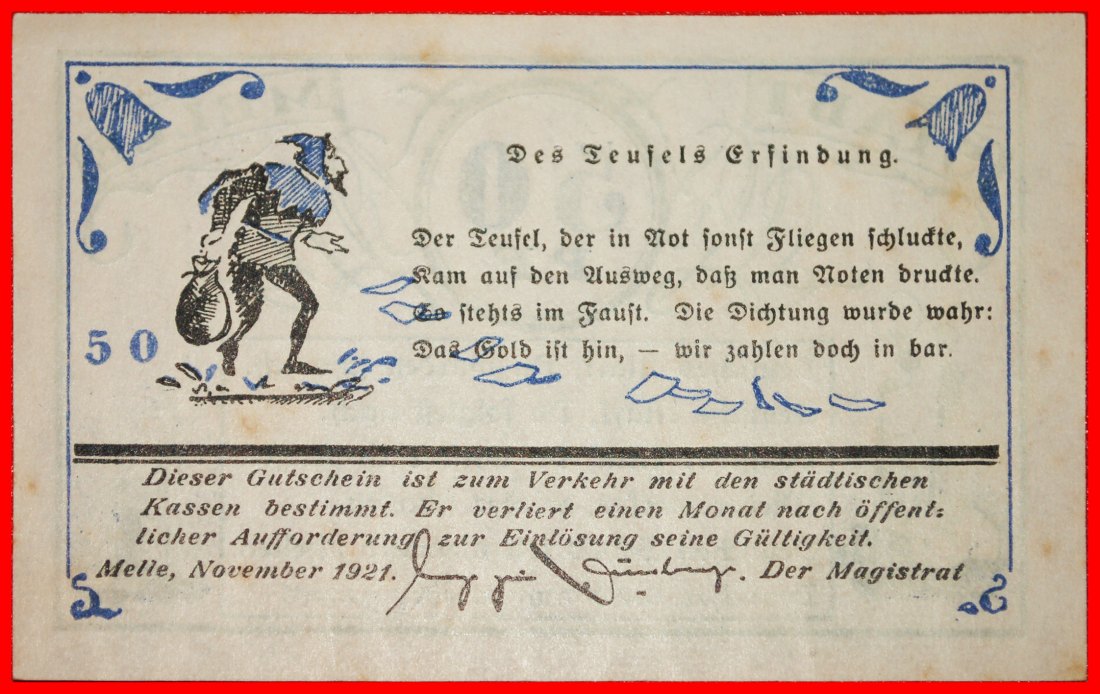 Des Teufels Erfindung.
Der Teufel, der in Not sonst Fliegen schluckte,
Kam auf den Ausweg, daß man Noten druckte.
So stehts im Faust. Die Dichtung wurde wahr:
Das Gold ist hin, — wir zahlen doch in bar.
50
Dieser Gutschein ist zum Verkehr mit den städtischen
Kassen bestimmt. Er verliert einen Monat nach öffent-
licher Aufforderung zur Einlösung seine Gültigkeit.
Melle, November 1921. Der Magistrat